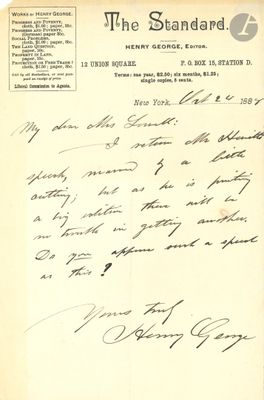 WORKS BY HENRY GEORGE.
PROGRESS AND POVERTY,
cloth, $1.00; paper, 35c.
PROGRESS AND POVERTY,
SOCIAL PROBLEMS,
cloth, $1.00; paper, 35c.
THE LAND QUESTION,
paper, 20c.
PROPERTY IN LAND,
paper, 15c.
PROTECTION OR FREE TRADE?
Liberal Commission to Agents.
The Standard.
HENRY GEORGE, EDITOR.
12 UNION SQUARE. P. O. BOX 15, STATION D.
Terms: one year, $2.50; six months, $1.25;
single copies, 5 cents.
New York, Oct 24 188
My dear Mrs Lowell:
I return Mr Hewitt's
speech, marred by a little
cutting; but as he is printing
a big edition there will be
no trouble in getting another.
Do you approve such a speech
as this?
Yours truly,
Henry George